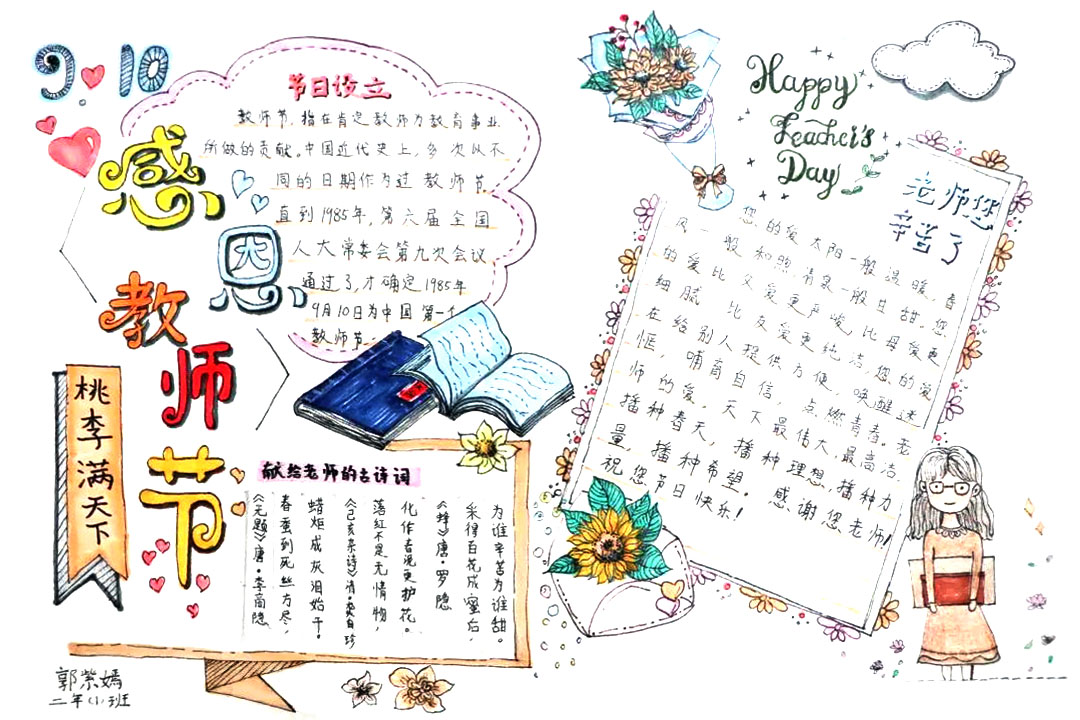 9.10
感恩
教师节
桃李满天下
节日设立
教师节,指在肯定教师为教育事业
所做的贡献。中国近代史上,多次以不
同的日期作为过教师节
直到1985年,第六届全国
人大常委会第九次会议
通过了,才确定1985年
9月10日为中国第一个
教师节.
献给老师的古诗词
《无题》唐·李商隐
春蚕到死丝方尽,
蜡炬成灰泪始干。
《己亥杂诗》清·龚自珍
落红不是无情物,
化作春泥更护花。
《蜂》唐·罗隐
采得百花成蜜后,
为谁辛苦为谁甜。
郭紫嫣
二年(1)班
Happy
Teacher's
Day
老师您
辛苦了
您的爱太阳一般温暖,春
风一般和煦清泉一般甘甜.您
的爱比父爱更严峻,比母爱更
细腻,比友爱更纯洁.您的爱
在给别人提供方便,唤醒迷
惘,哺育自信,点燃青春.老
师的爱,天下最伟大,最高洁.
播种春天,播种理想,播种力
量,播种希望,感谢您老师!
祝您节日快乐!